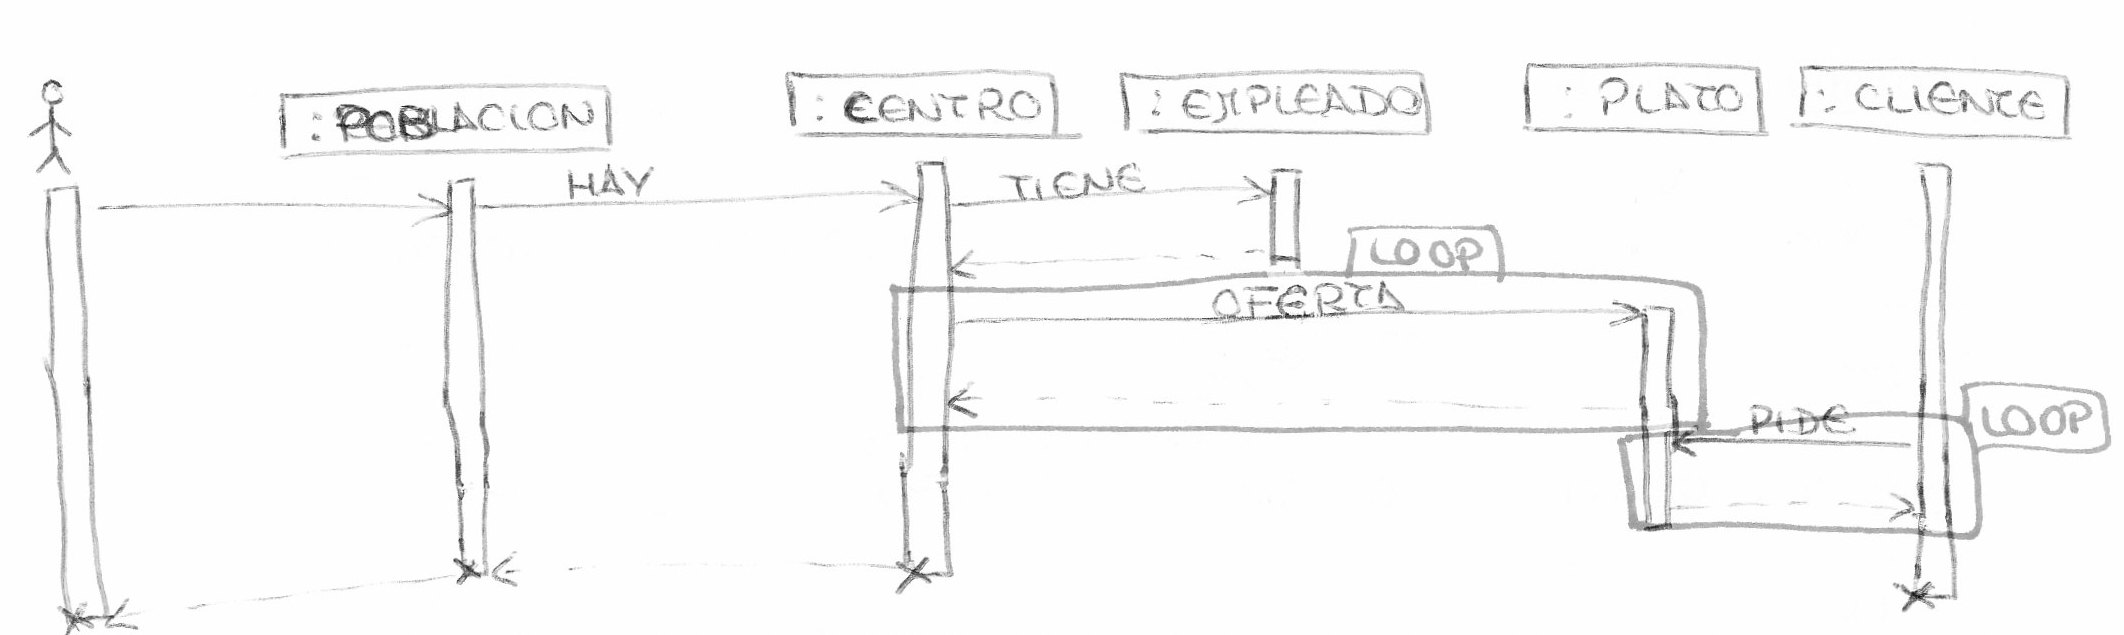 : POBLACION
: CENTRO
: EMPLEADO
: PLATO
: CLIENTE
HAY
TIENE
LOOP
OFERTA
PIDE
LOOP